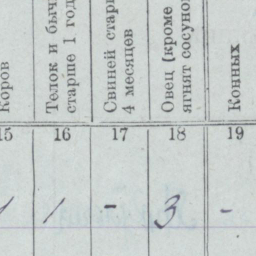 Коров
Телок и бычк
старше 1 год
Свиней стар
4 месяцев
Овец (кроме
ягнят сосуно
Конных
15 16 17 18 19
1 1 - 3 -